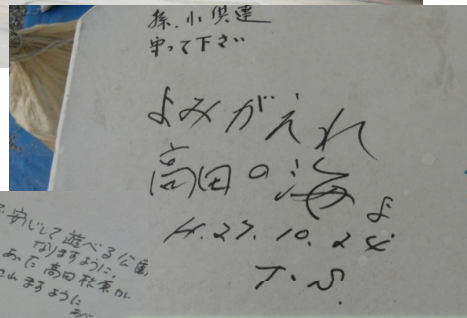 孫.小供達
守って下さい
よみがえれ
高田の海よ
H.27.10.24
T.S.
安心して遊べる公園
なりますように.
高田松原が
ますように